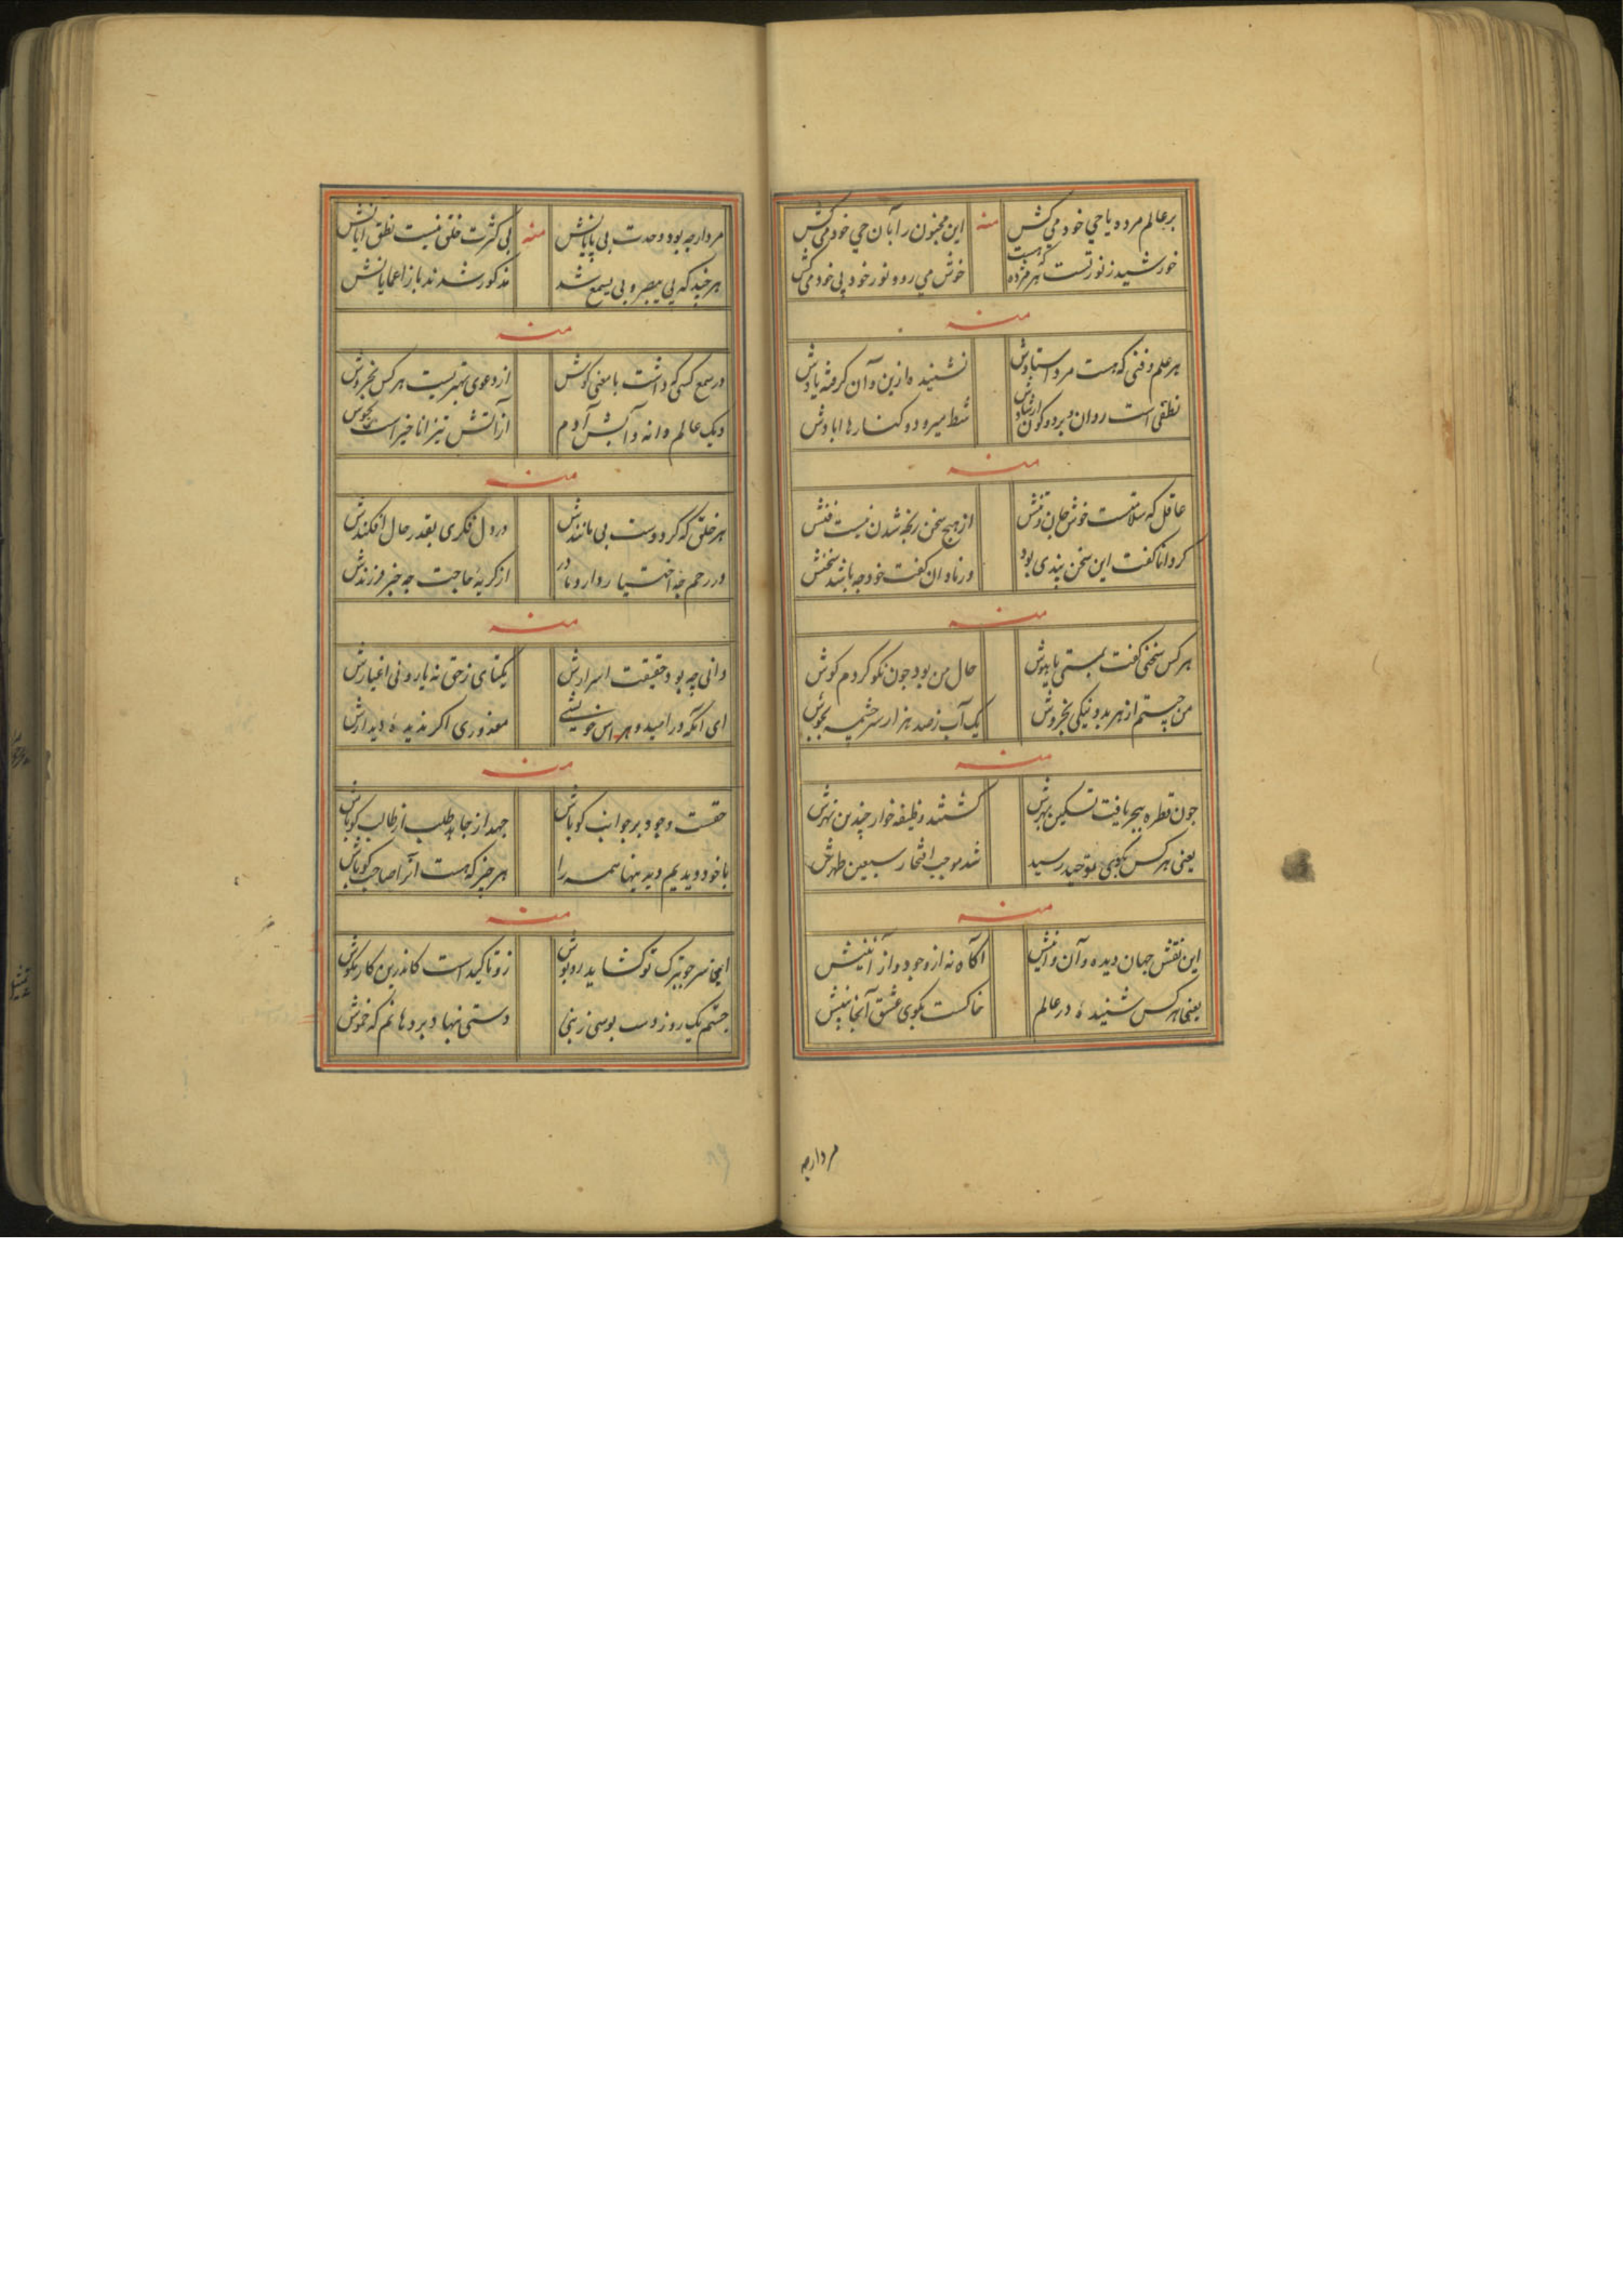 بر عالم مرده یا حی خود می‌کش منه این مجنون را بآن حی خود می‌کش
خورشید ز نور تست هر مرده که هست خوش می رو و نور خود پی خود می‌کش
منه
هر علم و فنی که هست مرد استادش نشنیده ازین و آن گرفته یادش
نطقی است روان و بر دو کون ارشادش شط میرود و کنارها ابادش
منه
عاقل که سلامتست خوش جان و تنش از هیچ سخن رنجه شدن نیست فنش
کر دانا گفت این سخن پندی بود ور نادان گفت خود چه باشد سخنش
منه
هر کس سخنی گفت بمستی یا بهوش حال من بود چون نکو کردم گوش
من چستم از هر بد و نیکی بخروش یک آب ز صد هزار سرچشمه بجوش
منه
چون قطره ببحر یافت تسکین بهرش گشتند وظیفه خوار چندین نهرش
یعنی هر کس بکوی توحید رسید شد موجب افتخار سبعین طهرش
منه
این نقش جهان دیده و آن آگاه نه از وجود و از
یعنی هر کس شنیده در عالم خاکست بکوی عشق آنجا
مردارچه
مردارچه بود وحدت بی پایانش منه بی کثرت خلق نیست نطق
هر چند که بی یبصر و بی یسمع شد مذکور شدند باز اعمایانش
منه
در سمع کسی که داشت با معنی گوش از دعوی نیستیست هر کس بخروش
دیک عالم دانه و آبش آدم از آتش تیز انا خیر است بجوش
منه
هر خلق که کرد دوست بی مانندش در دل فکری بقدر حال افکندش
در رحم چه اختیار دارد مادر از گریه حاجت چه خبر فرزندش
منه
دانی چه بود حقیقت اسرارش یکتای ز حق نه یار و نی اغیارش
ای آنکه در امید و هراس خویشی معذوری اگر ندیده دیدارش
منه
حقست وجود بر جوانب کو باش جهد از جاهد طلب از طالب کو باش
با خود دیدیم دید تنها همه را هر چیز که هست آنرا صاحب کو باش
منه
اینجا سر جو بترک تو گشاید روپوش زو تاکید است کاندرین کار بکوش
جستم یک روز دست بوسی ز نبی دستی نهاد بر دهانم که خموش